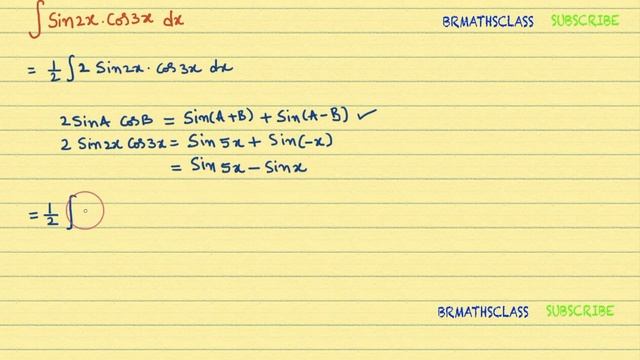 ∫ Sin2x·Cos3x dx
BRMATHSCLASS SUBSCRIBE
= 1/2 ∫ 2 Sin2x· Cos 3x dx
2 SinA CosB = Sin(A+B) + Sin(A-B) ✓
2 Sin2x Cos3x = Sin 5x + Sin(-x)
= Sin 5x - Sinx
= 1/2 ∫
BRMATHSCLASS SUBSCRIBE